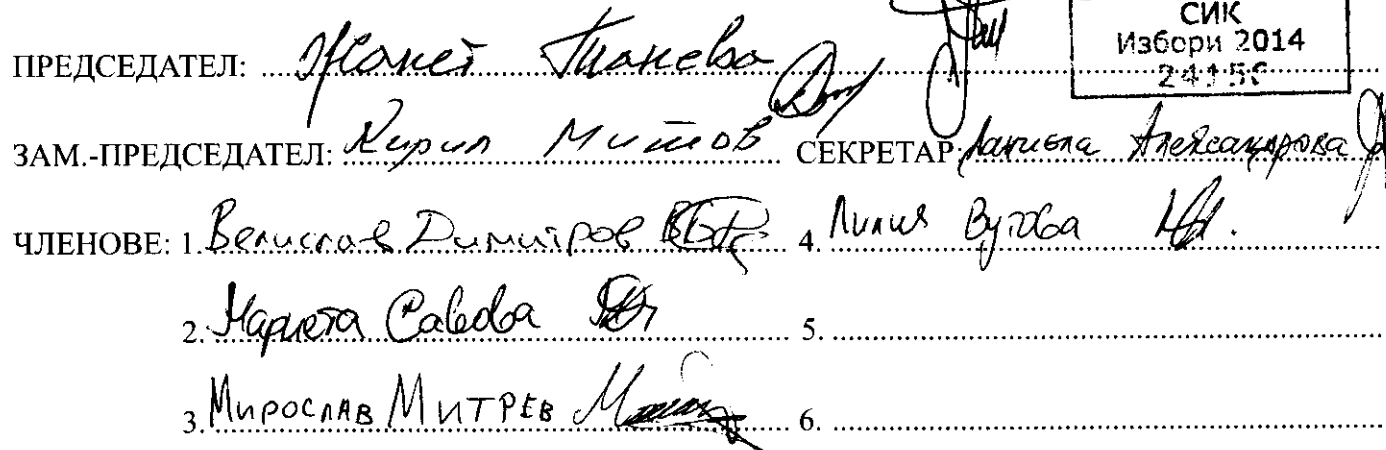 СИК
Избори 2014
ПРЕДСЕДАТЕЛ: Жанет Танева
ЗАМ.-ПРЕДСЕДАТЕЛ: Кирил Митов СЕКРЕТАР: Александрова
ЧЛЕНОВЕ: 1. Велислав Димитров 4. Лилия Вутова
2. Мариета Савова 5.
3. Мирослав Митрев 6.